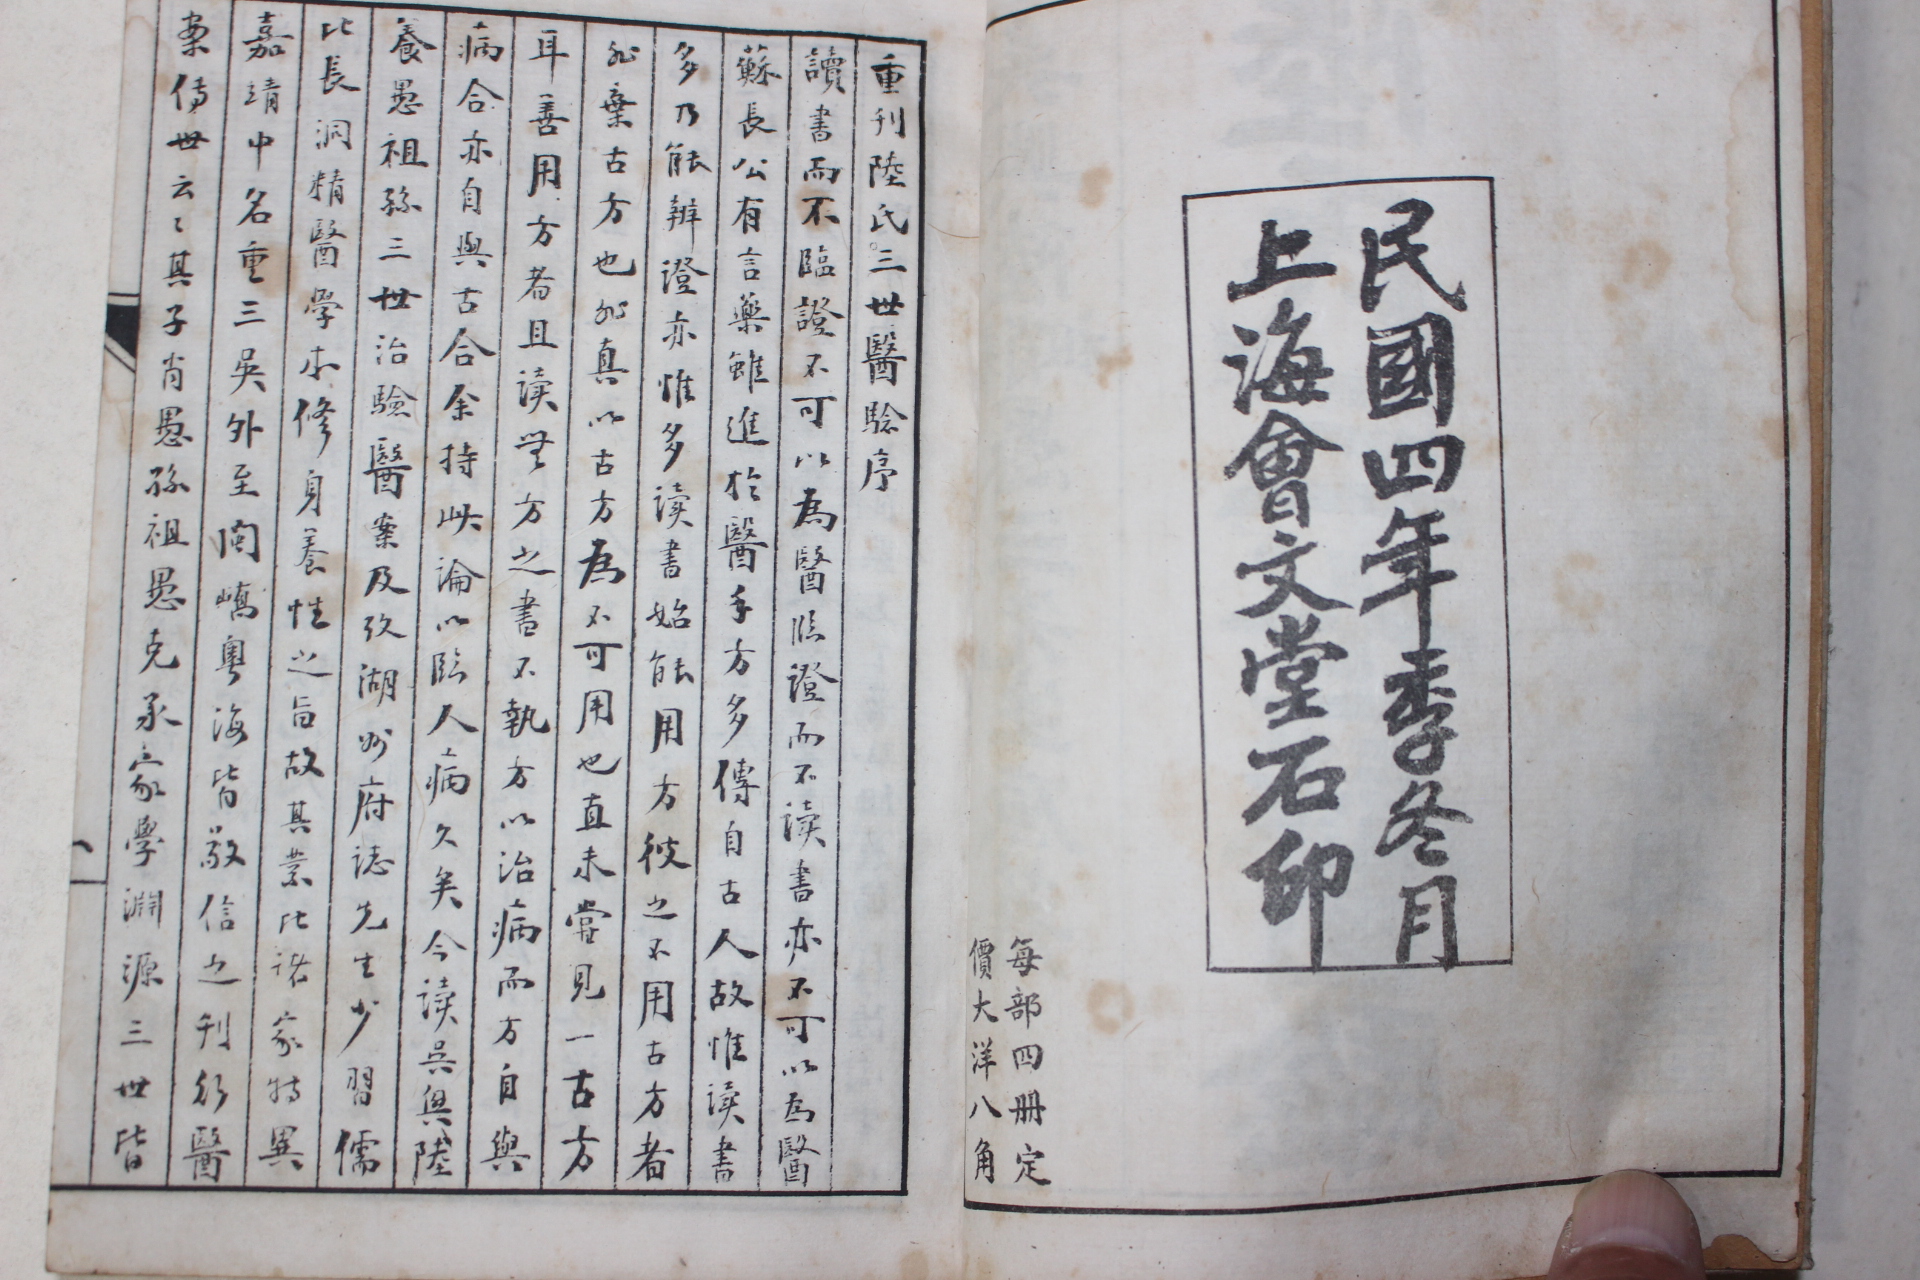 民國四年季冬月
上海會文堂石印
每部四册定
價大洋八角
重刊陸氏三世醫驗序
讀書而不臨證不可以為醫臨證而不读書亦不可以為醫
蘇長公有言藥雖進於醫手方多傳自古人故惟读書
多乃能辨證亦惟多读書始能用方彼之不用古方者
非棄古方也非真以古方為不可用也直未嘗見一古方
耳善用方者且读無方之書不執方以治病而方自與
病合亦自與古合余持此論以臨人病久矣今读吳興陸
養愚祖孫三世治驗醫案及攷湖州府誌先生少習儒
比長洞精醫學本修身養性之旨故其業比諸家特異
嘉靖中名重三吳外至閩嶠粵海皆敬信之刊行醫
案傳世云〻其子肖愚孫祖愚克承家學淵源三世皆